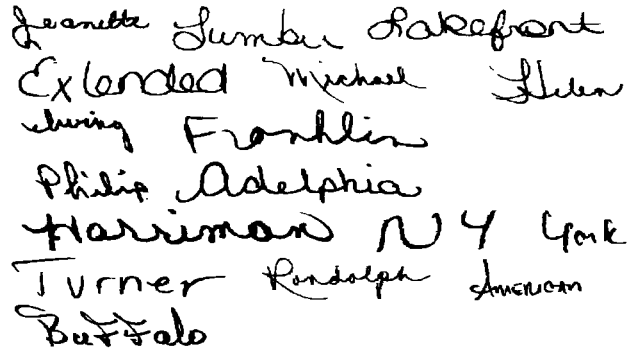 Jeanette Lumber Lakefront
Extended Michael Helen
Irving Franklin
Philip Adelphia
Harriman NY York
Turner Randolph American
Buffalo